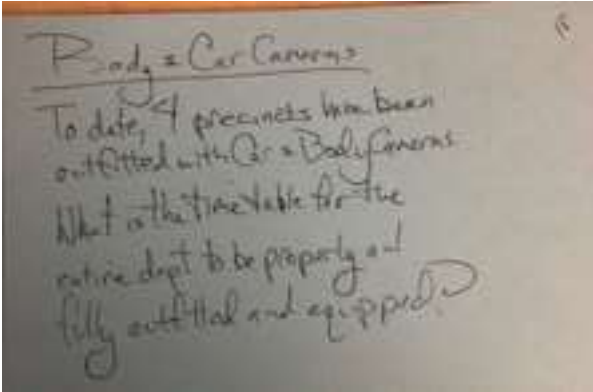 Body & Car Cameras
To date, 4 precincts have been
outfitted with Car & Body Cameras
What is the time table for the
entire dept to be properly and
fully outfitted and equipped?